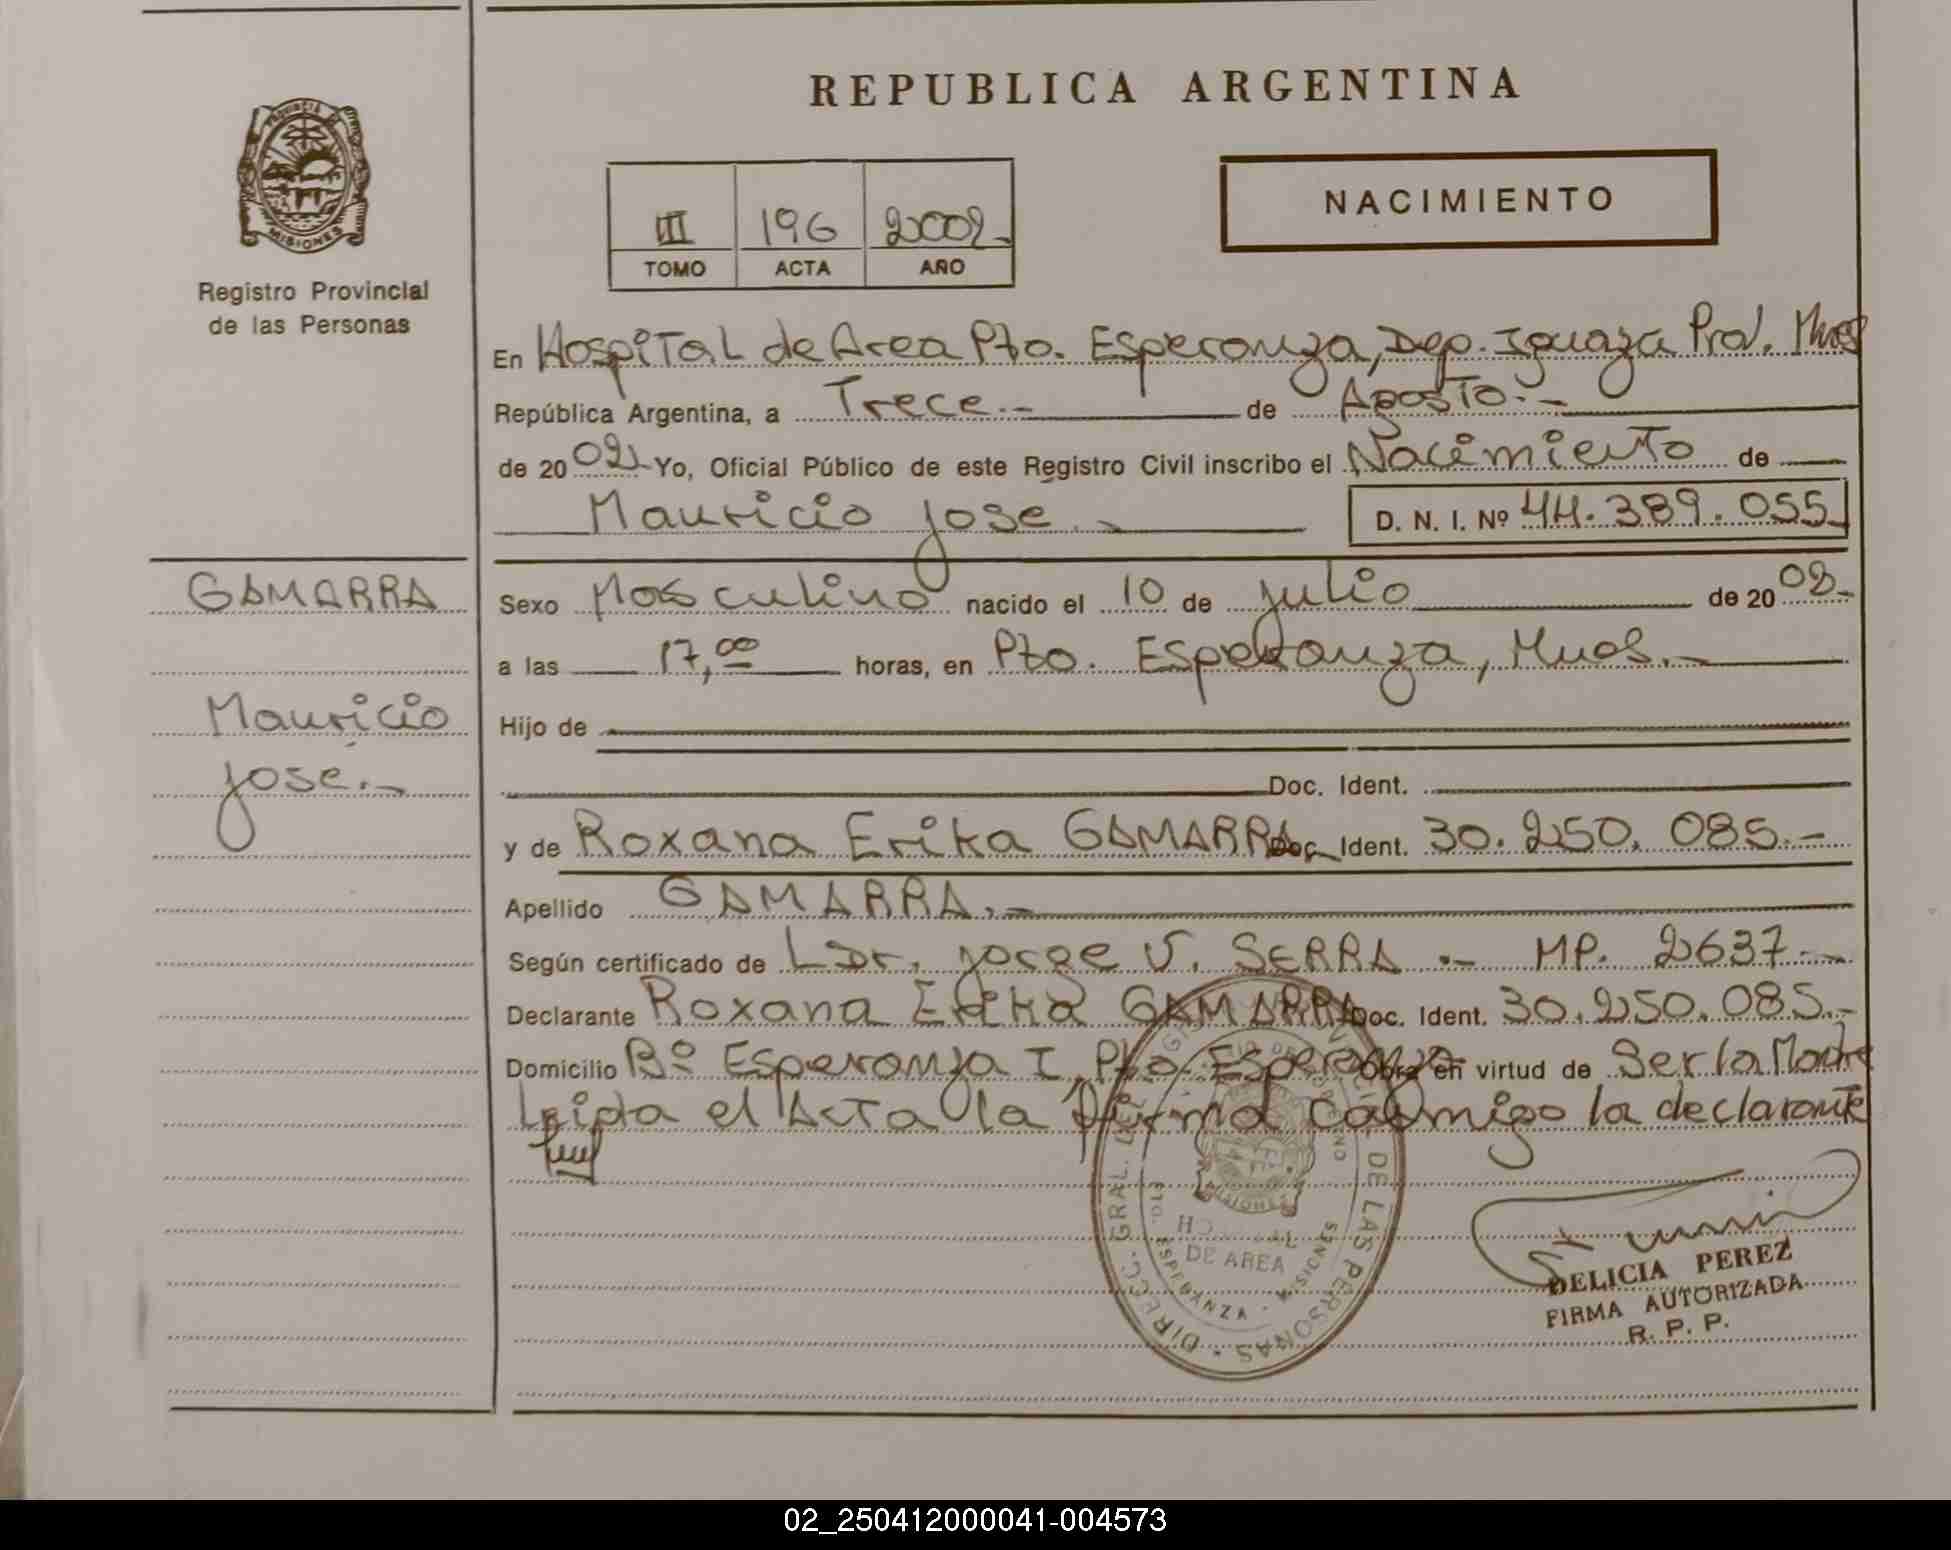 REPUBLICA ARGENTINA
NACIMIENTO
III 196 2002
TOMO ACTA AÑO
MISIONES
Registro Provincial
de las Personas
En Hospital de Area Pto. Esperanza, Dep. Iguazú Prov. Mnes
República Argentina, a Trece.- de Agosto.-
de 20 02 Yo, Oficial Público de este Registro Civil inscribo el Nacimiento de
Mauricio José.- D. N. I. Nº 44.389.055
GAMARRA
Mauricio
José.-
Sexo Masculino nacido el 10 de Julio de 20 02-
a las 17,00 horas, en Pto. Esperanza, Mnes.-
Hijo de
Doc. Ident.
y de Roxana Erika GAMARRA Doc. Ident. 30.250.085.-
Apellido GAMARRA.-
Según certificado de Dr. Jorge V. SERRA.- MP. 2637.-
Declarante Roxana Erika GAMARRA Doc. Ident. 30.250.085.-
Domicilio Bº Esperanza I, Pto. Esperanza Obra en virtud de Ser la Madre
Leida el Acta la firma conmigo la declarante
DIRECC. GRAL. DEL DE LAS PERSONAS
HOSPITAL
DE AREA
ESPERANZA - MISIONES
DELICIA PEREZ
FIRMA AUTORIZADA
R. P. P.
02_250412000041-004573